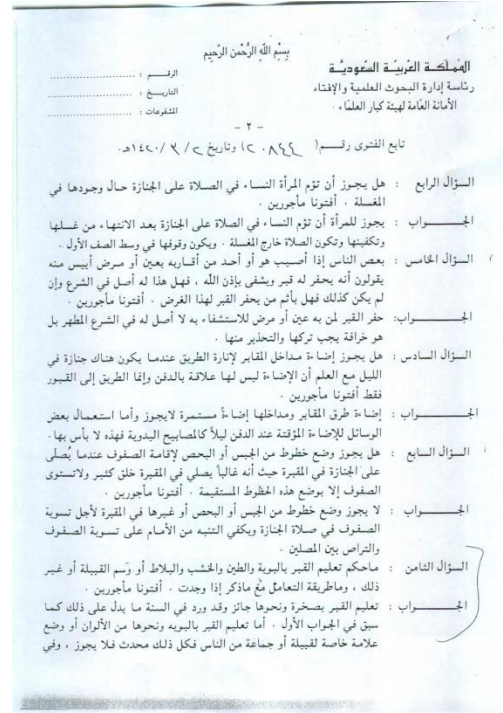 بِسْمِ اللهِ الرَّحْمنِ الرَّحِيمِ
المملكة العربية السعودية
رئاسة إدارة البحوث العلمية والإفتاء
الأمانة العامة لهيئة كبار العلماء .
الرقـم :
التاريخ :
المشفوعات :
- ٢ -
تابع الفتوى رقـم ( ٢٠٤٤٨ ) وتاريخ ٢ / ٣ / ١٤٢٠هـ.
السؤال الرابع : هل يجوز أن تؤم المرأة النساء في الصلاة على الجنازة حال وجودها في
المغسلة . أفتونا مأجورين .
الجـــواب : يجوز للمرأة أن تؤم النساء في الصلاة على الجنازة بعد الانتهاء من غسلها
وتكفينها وتكون الصلاة خارج المغسلة . ويكون وقوفها في وسط الصف الأول .
السؤال الخامس : بعض الناس إذا أصيب هو أو أحد من أقاربه بعين أو مرض أييس منه
يقولون أنه يحفر له قبر ويشفى بإذن الله ، فهل هذا له أصل في الشرع وإن
لم يكن كذلك فهل يأثم من يحفر القبر لهذا الغرض . أفتونا مأجورين .
الجـــواب: حفر القبر لمن به عين أو مرض للاستشفاء به لا أصل له في الشرع المطهر بل
هو خرافة يجب تركها والتحذير منها .
السؤال السادس : هل يجوز إضاءة مداخل المقابر لإنارة الطريق عندما يكون هناك جنازة في
الليل مع العلم أن الإضاءة ليس لها علاقة بالدفن وإنما الطريق إلى القبور
فقط أفتونا مأجورين .
الجـــواب : إضاءة طرق المقابر ومداخلها إضاءةً مستمرة لايجوز وأما استعمال بعض
الوسائل للإضاءة المؤقتة عند الدفن ليلاً كالمصابيح اليدوية فهذه لا بأس بها .
السؤال السابع : هل يجوز وضع خطوط من الجبس أو البحص لإقامة الصفوف عندما يُصلى
على الجنازة في المقبرة حيث أنه غالباً يصلي في المقبرة خلق كثير ولاتستوى
الصفوف إلا بوضع هذه الخطوط المستقيمة . أفتونا مأجورين .
الجـــواب : لا يجوز وضع خطوط من الجبس أو البحص أو غيرها في المقبرة لأجل تسوية
الصفوف في صلاة الجنازة ويكفي التنبه من الأمام على تسوية الصفوف
والتراص بين المصلين .
السؤال الثامن : ماحكم تعليم القبر بالبوية والطين والخشب والبلاط أو وَسم القبيلة أو غير
ذلك ، وماطريقة التعامل مع ماذكر إذا وجدت . أفتونا مأجورين .
الجـــواب : تعليم القبر بصخرة ونحوها جائز وقد ورد في السنة ما يدل على ذلك كما
سبق في الجواب الأول . أما تعليم القبر بالبويه ونحوها من الألوان أو وضع
علامة خاصة لقبيلة أو جماعة من الناس فكل ذلك محدث فلا يجوز ، وفي